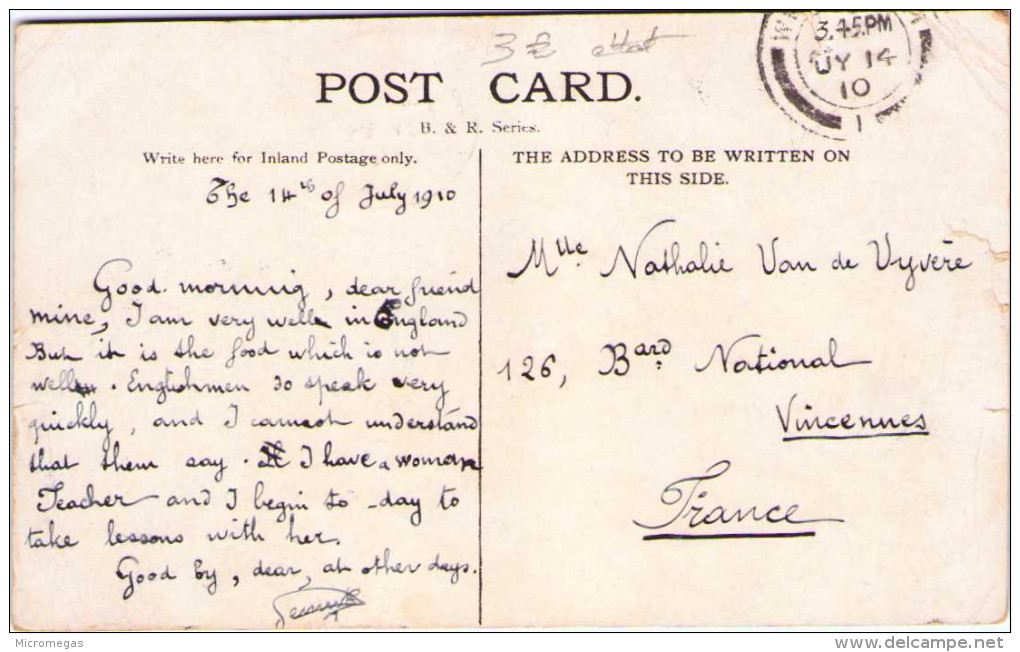 3 €
POST CARD.
B. & R. Series.
3.45PM
JY 14
10
1
Write here for Inland Postage only.
THE ADDRESS TO BE WRITTEN ON
THIS SIDE.
The 14th of July 1910
Good. morning, dear friend
mine, I am very well in England
But it is the food which is not
well. Englishmen so speak very
quickly, and I cannot understand
that them say. I have a woman
Teacher and I begin to-day to
take lessons with her.
Good by, dear, at other days.
Mlle Nathalie Van de Vyvère
126, Bard National
Vincennes
France
Micromegas
www.delcampe.net